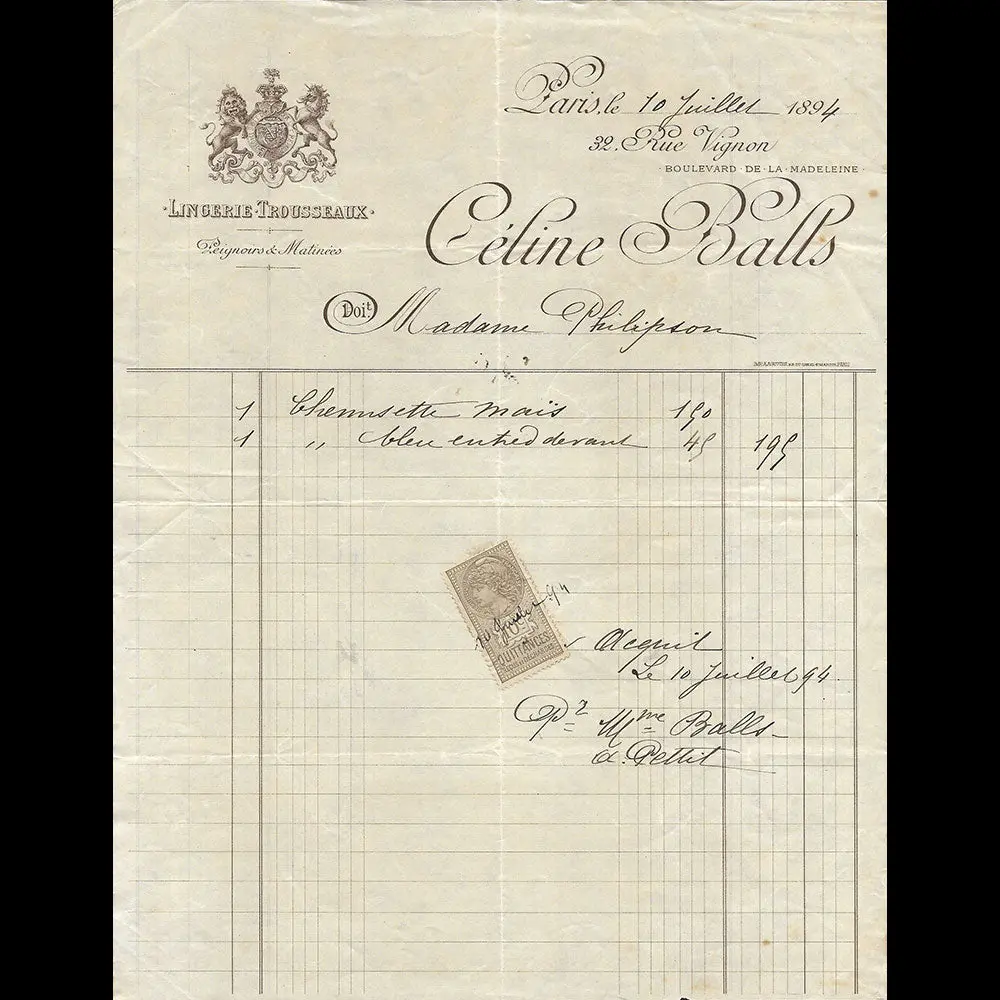 Paris, le 10 Juillet 1894
32, Rue Vignon
BOULEVARD · DE · LA · MADELEINE
· LINGERIE · TROUSSEAUX ·
Peignoirs & Matinées
Céline Balls
Doit. Madame Philipson
1 Chemisette maïs 150
1 " bleu entred devant 45 195
10 Juillet 94
10c
QUITTANCES
Acquit
Le 10 Juillet 94.
Pr Mme Balls
a. Pettit